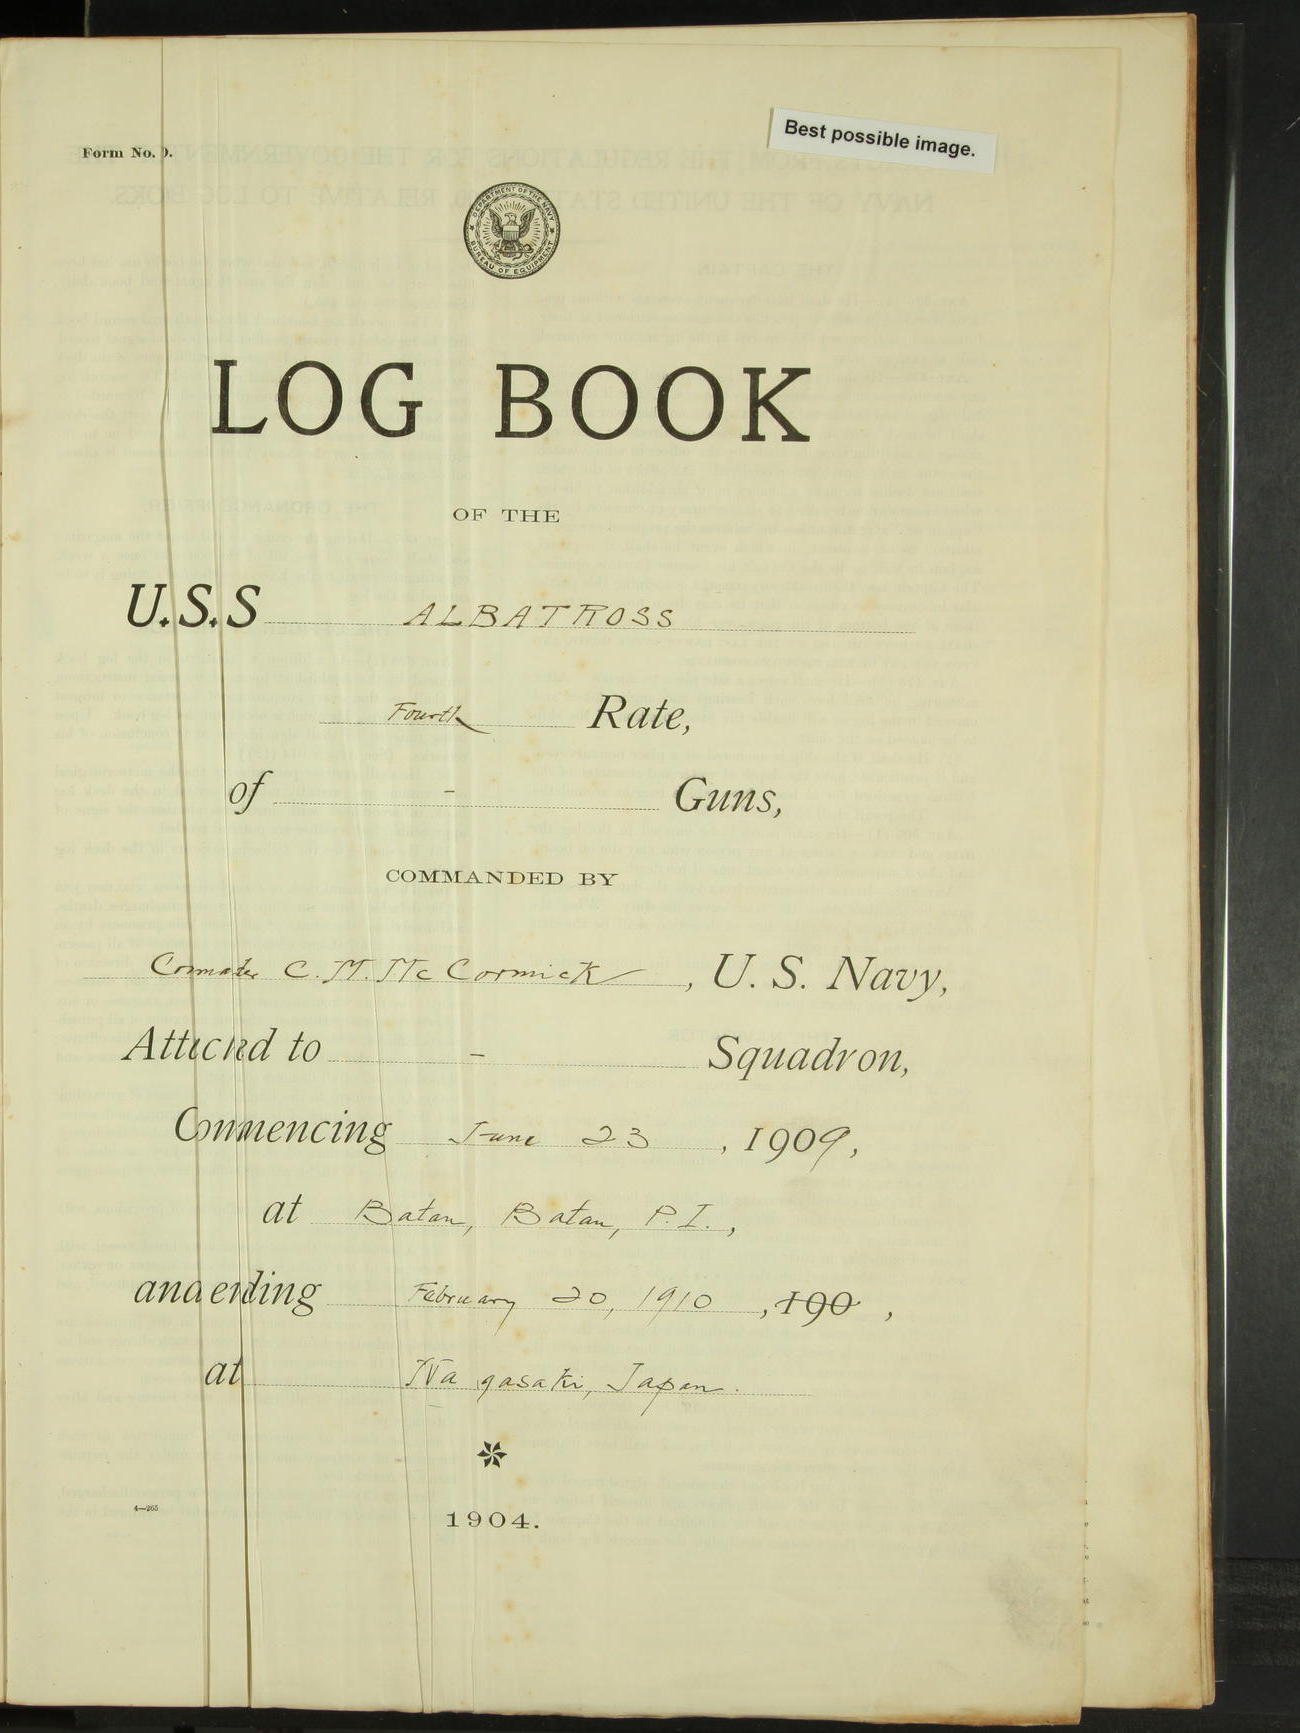 Best possible image.
Form No. 9.
DEPARTMENT OF THE NAVY
BUREAU OF EQUIPMENT
LOG BOOK
OF THE
U.S.S ALBATROSS
Fourth Rate,
of - Guns,
COMMANDED BY
C. M. McCormick, U. S. Navy,
Attached to - Squadron,
Commencing June 23, 1909,
at Batan, Batan, P. I.,
and ending February 20, 1910, 190 ,
at Nagasaki, Japan.
4—265
1904.